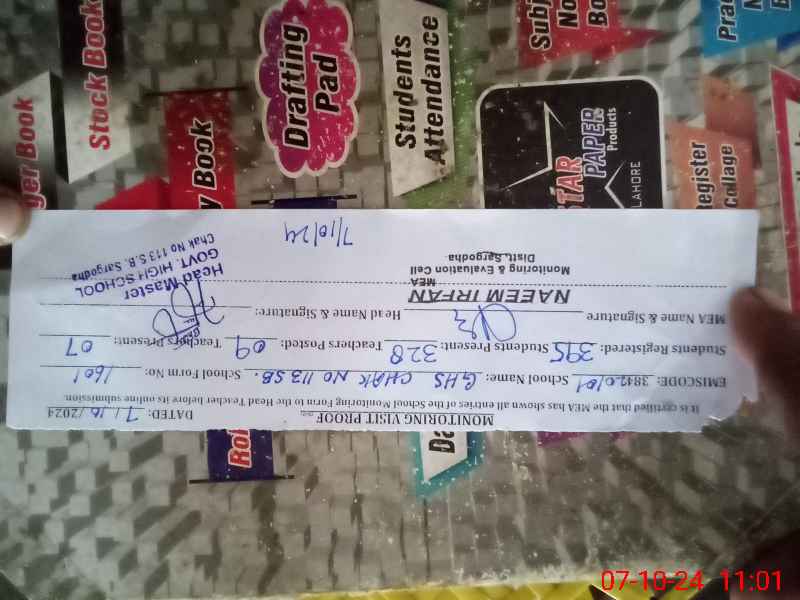 MONITORING VISIT PROOF
DATED: 7/10/2024
It is certified that the MEA has shown all entries of the School Monitoring Form to the Head Teacher before its online submission.
EMISCODE: 38420101 School Name: GHS CHAK NO 113 SB. School Form No: 1601
Students Registered: 395 Students Present: 328 Teachers Posted: 09 Teachers Present: 07
MEA Name & Signature Head Name & Signature:
NAEEM IRFAN
MEA
Monitoring & Evaluation Cell
Distt. Sargodha.
Head Master
GOVT. HIGH SCHOOL
Chak No 113 S.B. Sargodha
7/10/24
ger Book
Stock Book
y Book
Drafting
Pad
Students
Attendance
STAR
PAPER
Products
LAHORE
Register
Collage
07-10-24 11:01